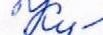 Ку-